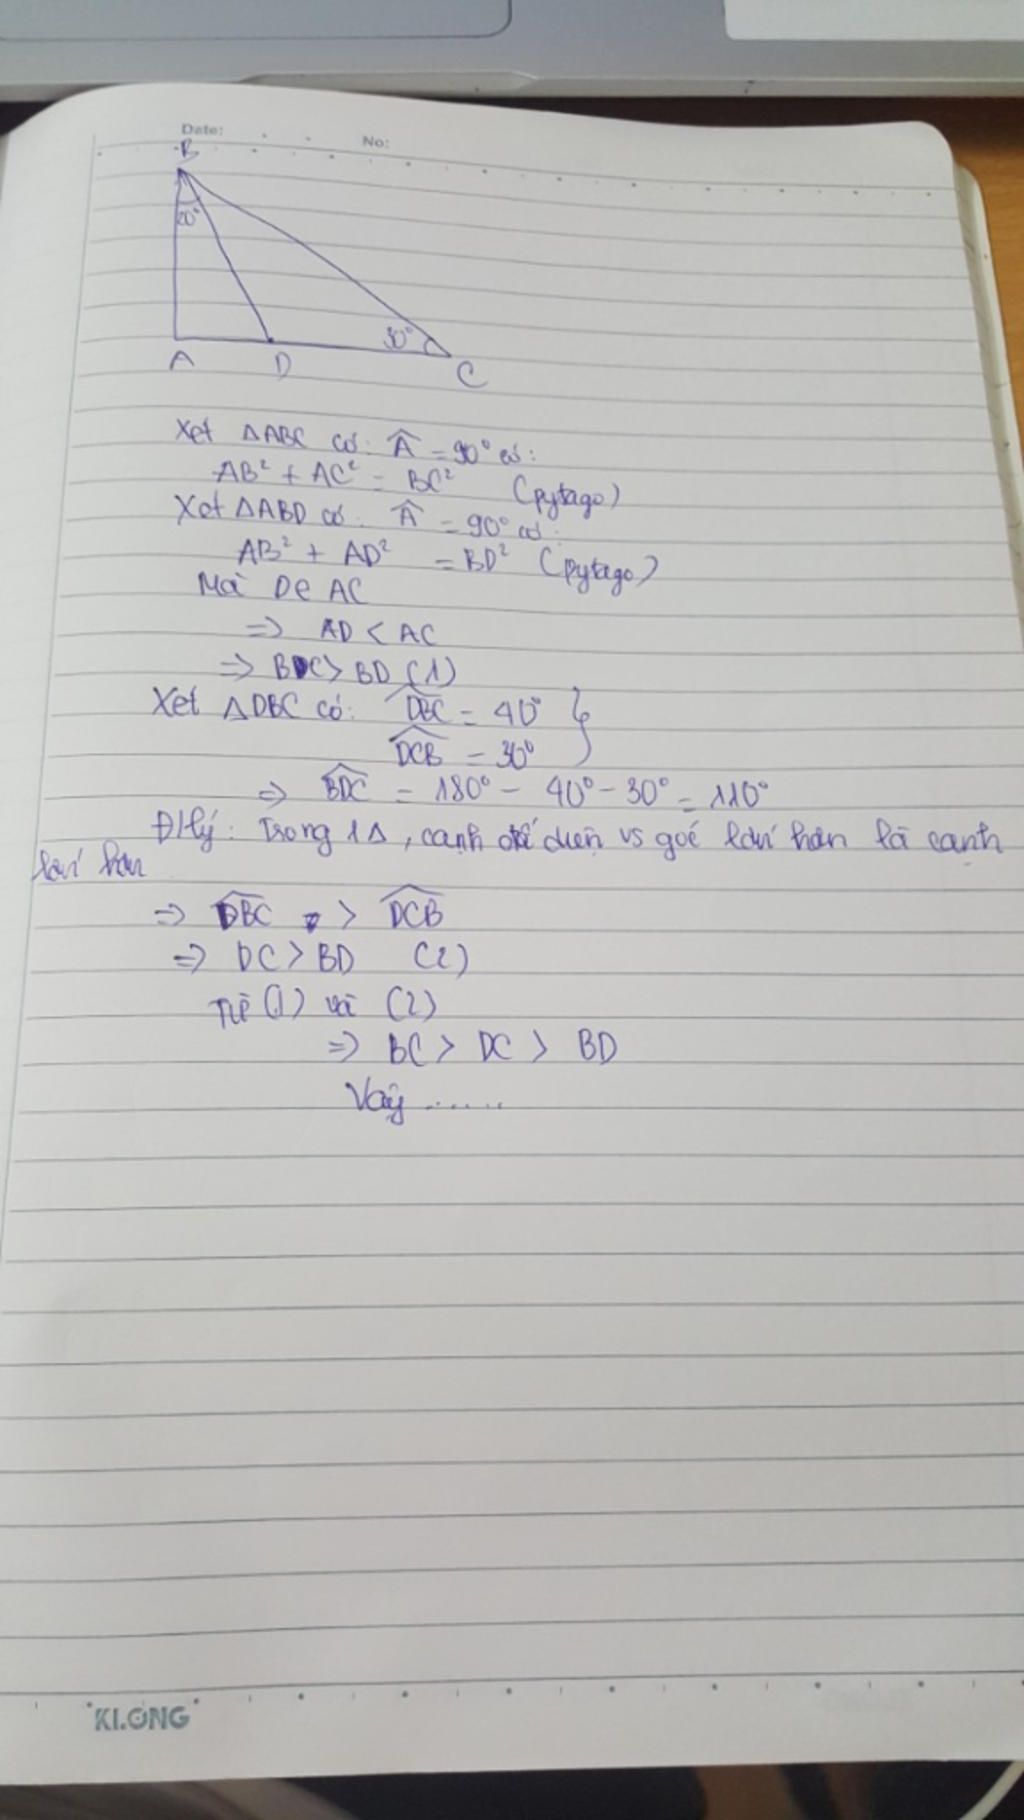 Date:
No:
B
20°
30°
A D C
Xét ΔABC có: Â = 90° có:
AB² + AC² = BC² (pytago)
Xét ΔABD có: Â = 90° có:
AB² + AD² = BD² (pytago)
Mà D∈ AC
=> AD < AC
=> BC > BD (1)
Xét ΔDBC có: DBC = 40° }
DCB = 30°
=> BDC = 180° - 40° - 30° = 110°
Đ/lý: Trong 1Δ, cạnh đối diện vs góc lớn hơn là cạnh
lớn hơn
=> DBC > DCB
=> DC > BD (2)
Từ (1) và (2)
=> BC > DC > BD
Vậy ......
KLONG